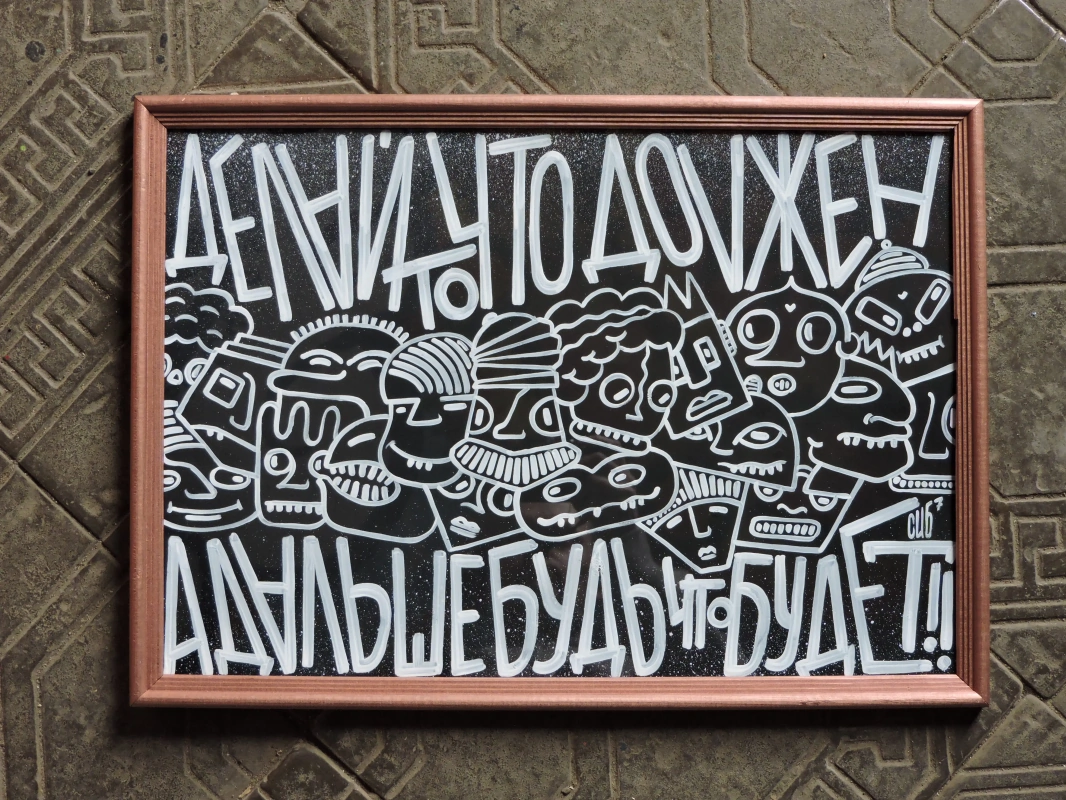 ДЕЛАЙ ТО ЧТО ДОЛЖЕН
СИБ
А ДАЛЬШЕ БУДЬ ЧТО БУДЕТ!!